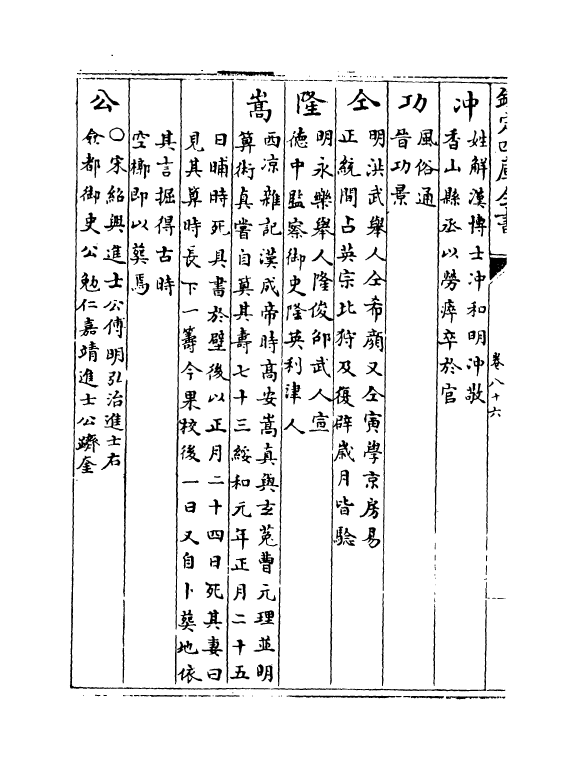 欽定四庫全書
卷八十六
冲
姓解漢博士冲和明冲敬
香山縣丞以勞瘁卒於官
功
風俗通
晉功景
仝
明洪武舉人仝希顔又仝寅學京房易
正統間占英宗北狩及復辟歲月皆驗
隆
明永樂舉人隆俊邰武人宣
德中監察御史隆英利津人
嵩
西凉雜記漢成帝時髙安嵩真與玄菟曹元理並明
算術真嘗自算其壽七十三綏和元年正月二十五
日晡時死具書於壁後以正月二十四日死其妻曰
見其算時長下一籌今果校後一日又自卜葬地依
其言掘得古時
空槨即以葬焉
公
○宋紹興進士公傅明弘治進士右
僉都御史公勉仁嘉靖進士公躋奎